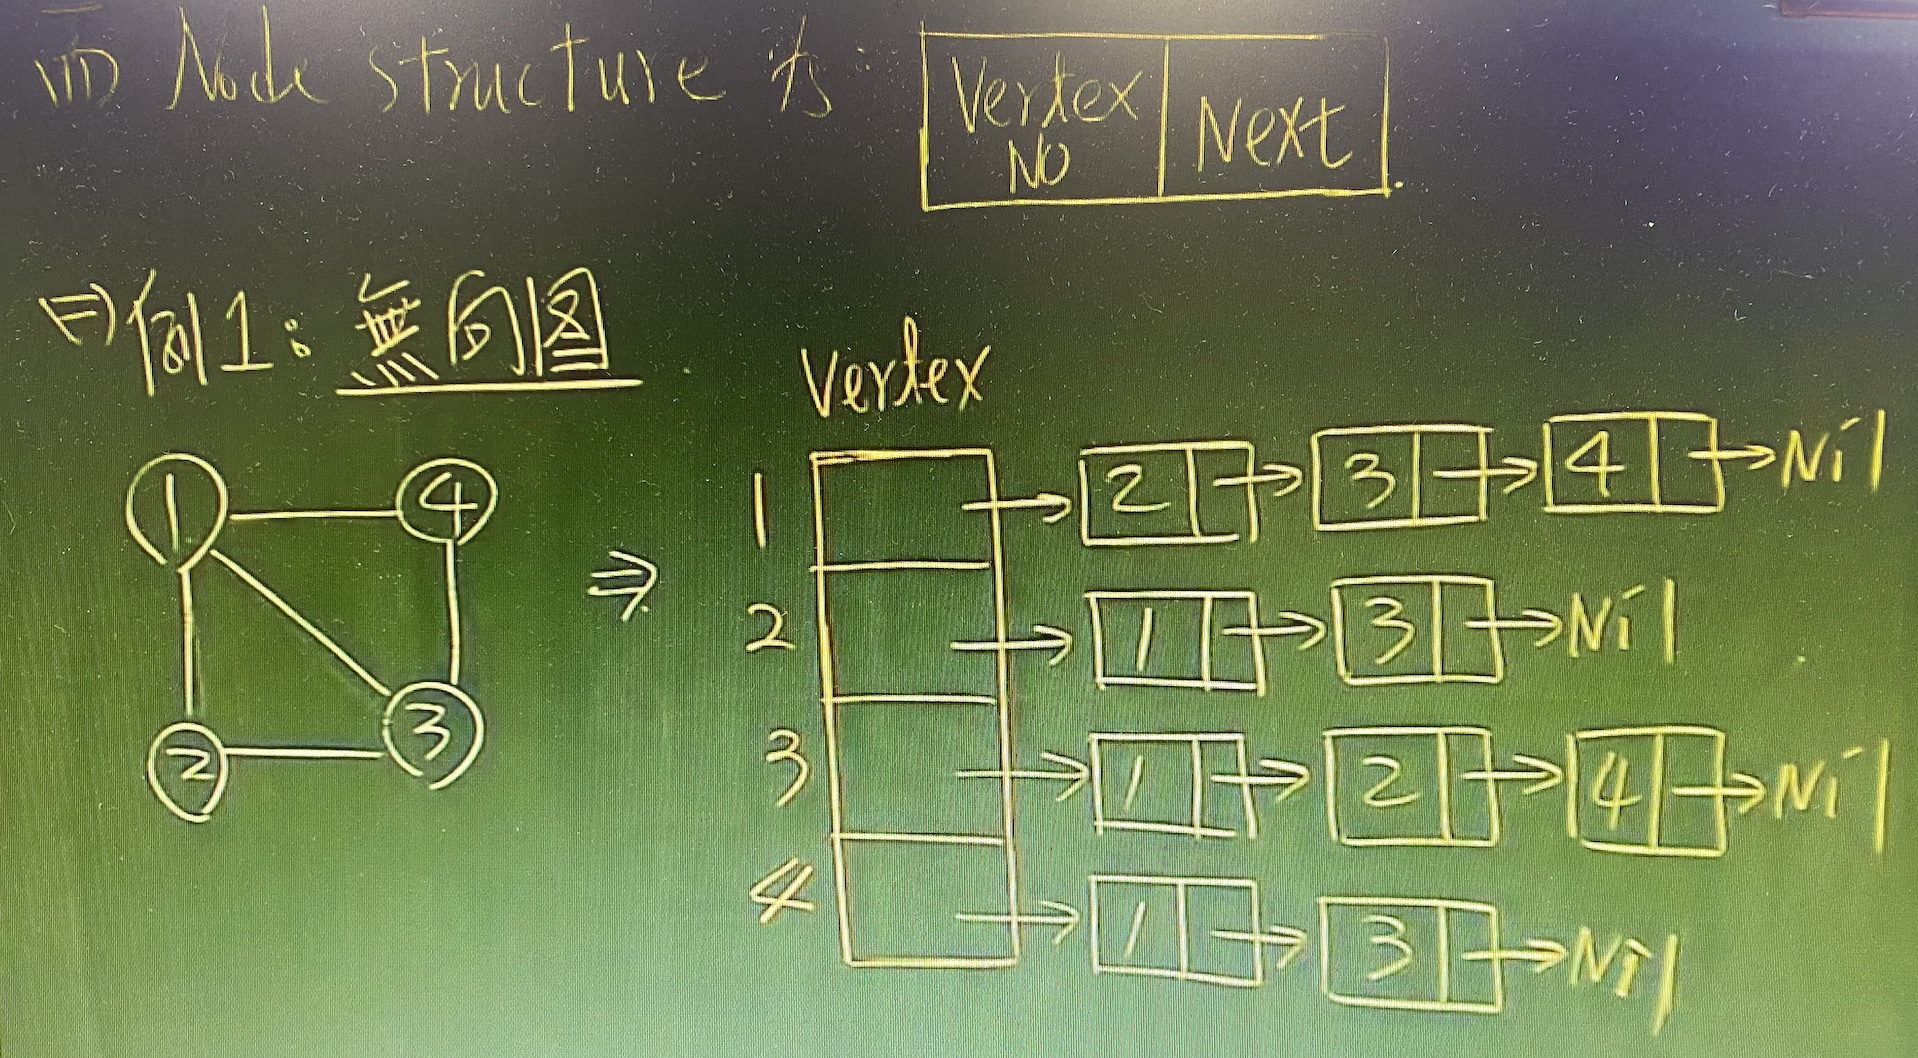 (iii) Node structure 为:
Vertex NO Next
(=)例1: 無向图
Vertex
1 4
2 3
1 2 3 4 Nil
2 1 3 Nil
3 1 2 4 Nil
4 1 3 Nil